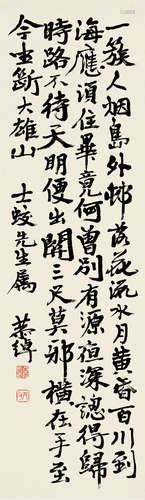 一簇人烟島外邨落花流水月黃昏百川到
海應須住畢竟何曾別有源洹深認得歸
時路不待天明便出關三尺莫邪橫在手至
今坐斷大雄山
士蛟先生属
葉恭綽